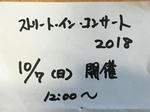 ストリート・イン・コンサート
2018
10/7(日)開催
12:00〜